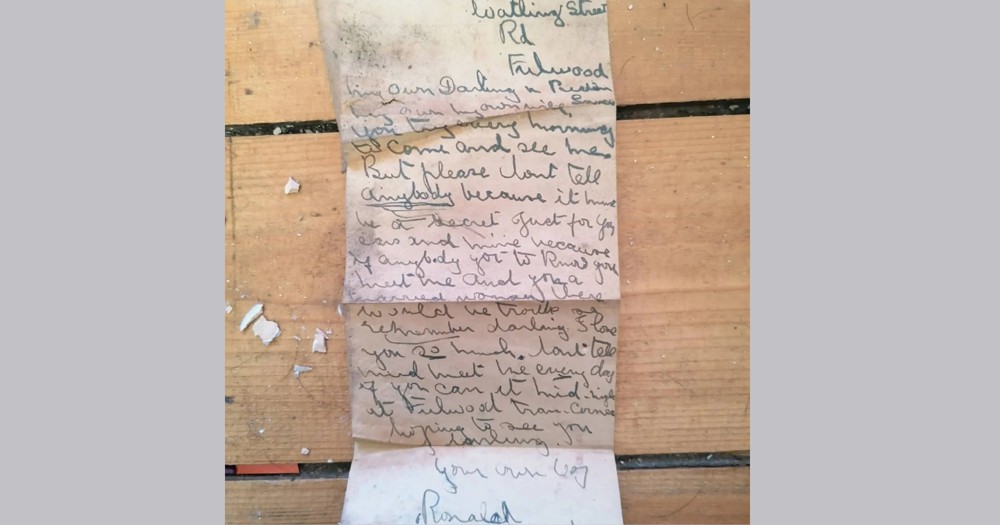 Watling Street
Rd
Fulwood
my own Darling
my own
you try every morning
to come and see me
But please dont tell
anybody because it must
be a secret Just for yo
ers and mine because
if anybody got to know you
meet me and you a
married woman there
would be trouble so
remember darling I love
you so much. dont tell
and meet me every day
if you can at mid-nigh
at Fulwood tram-corner
hoping to see you
darling.
your own
Ronald